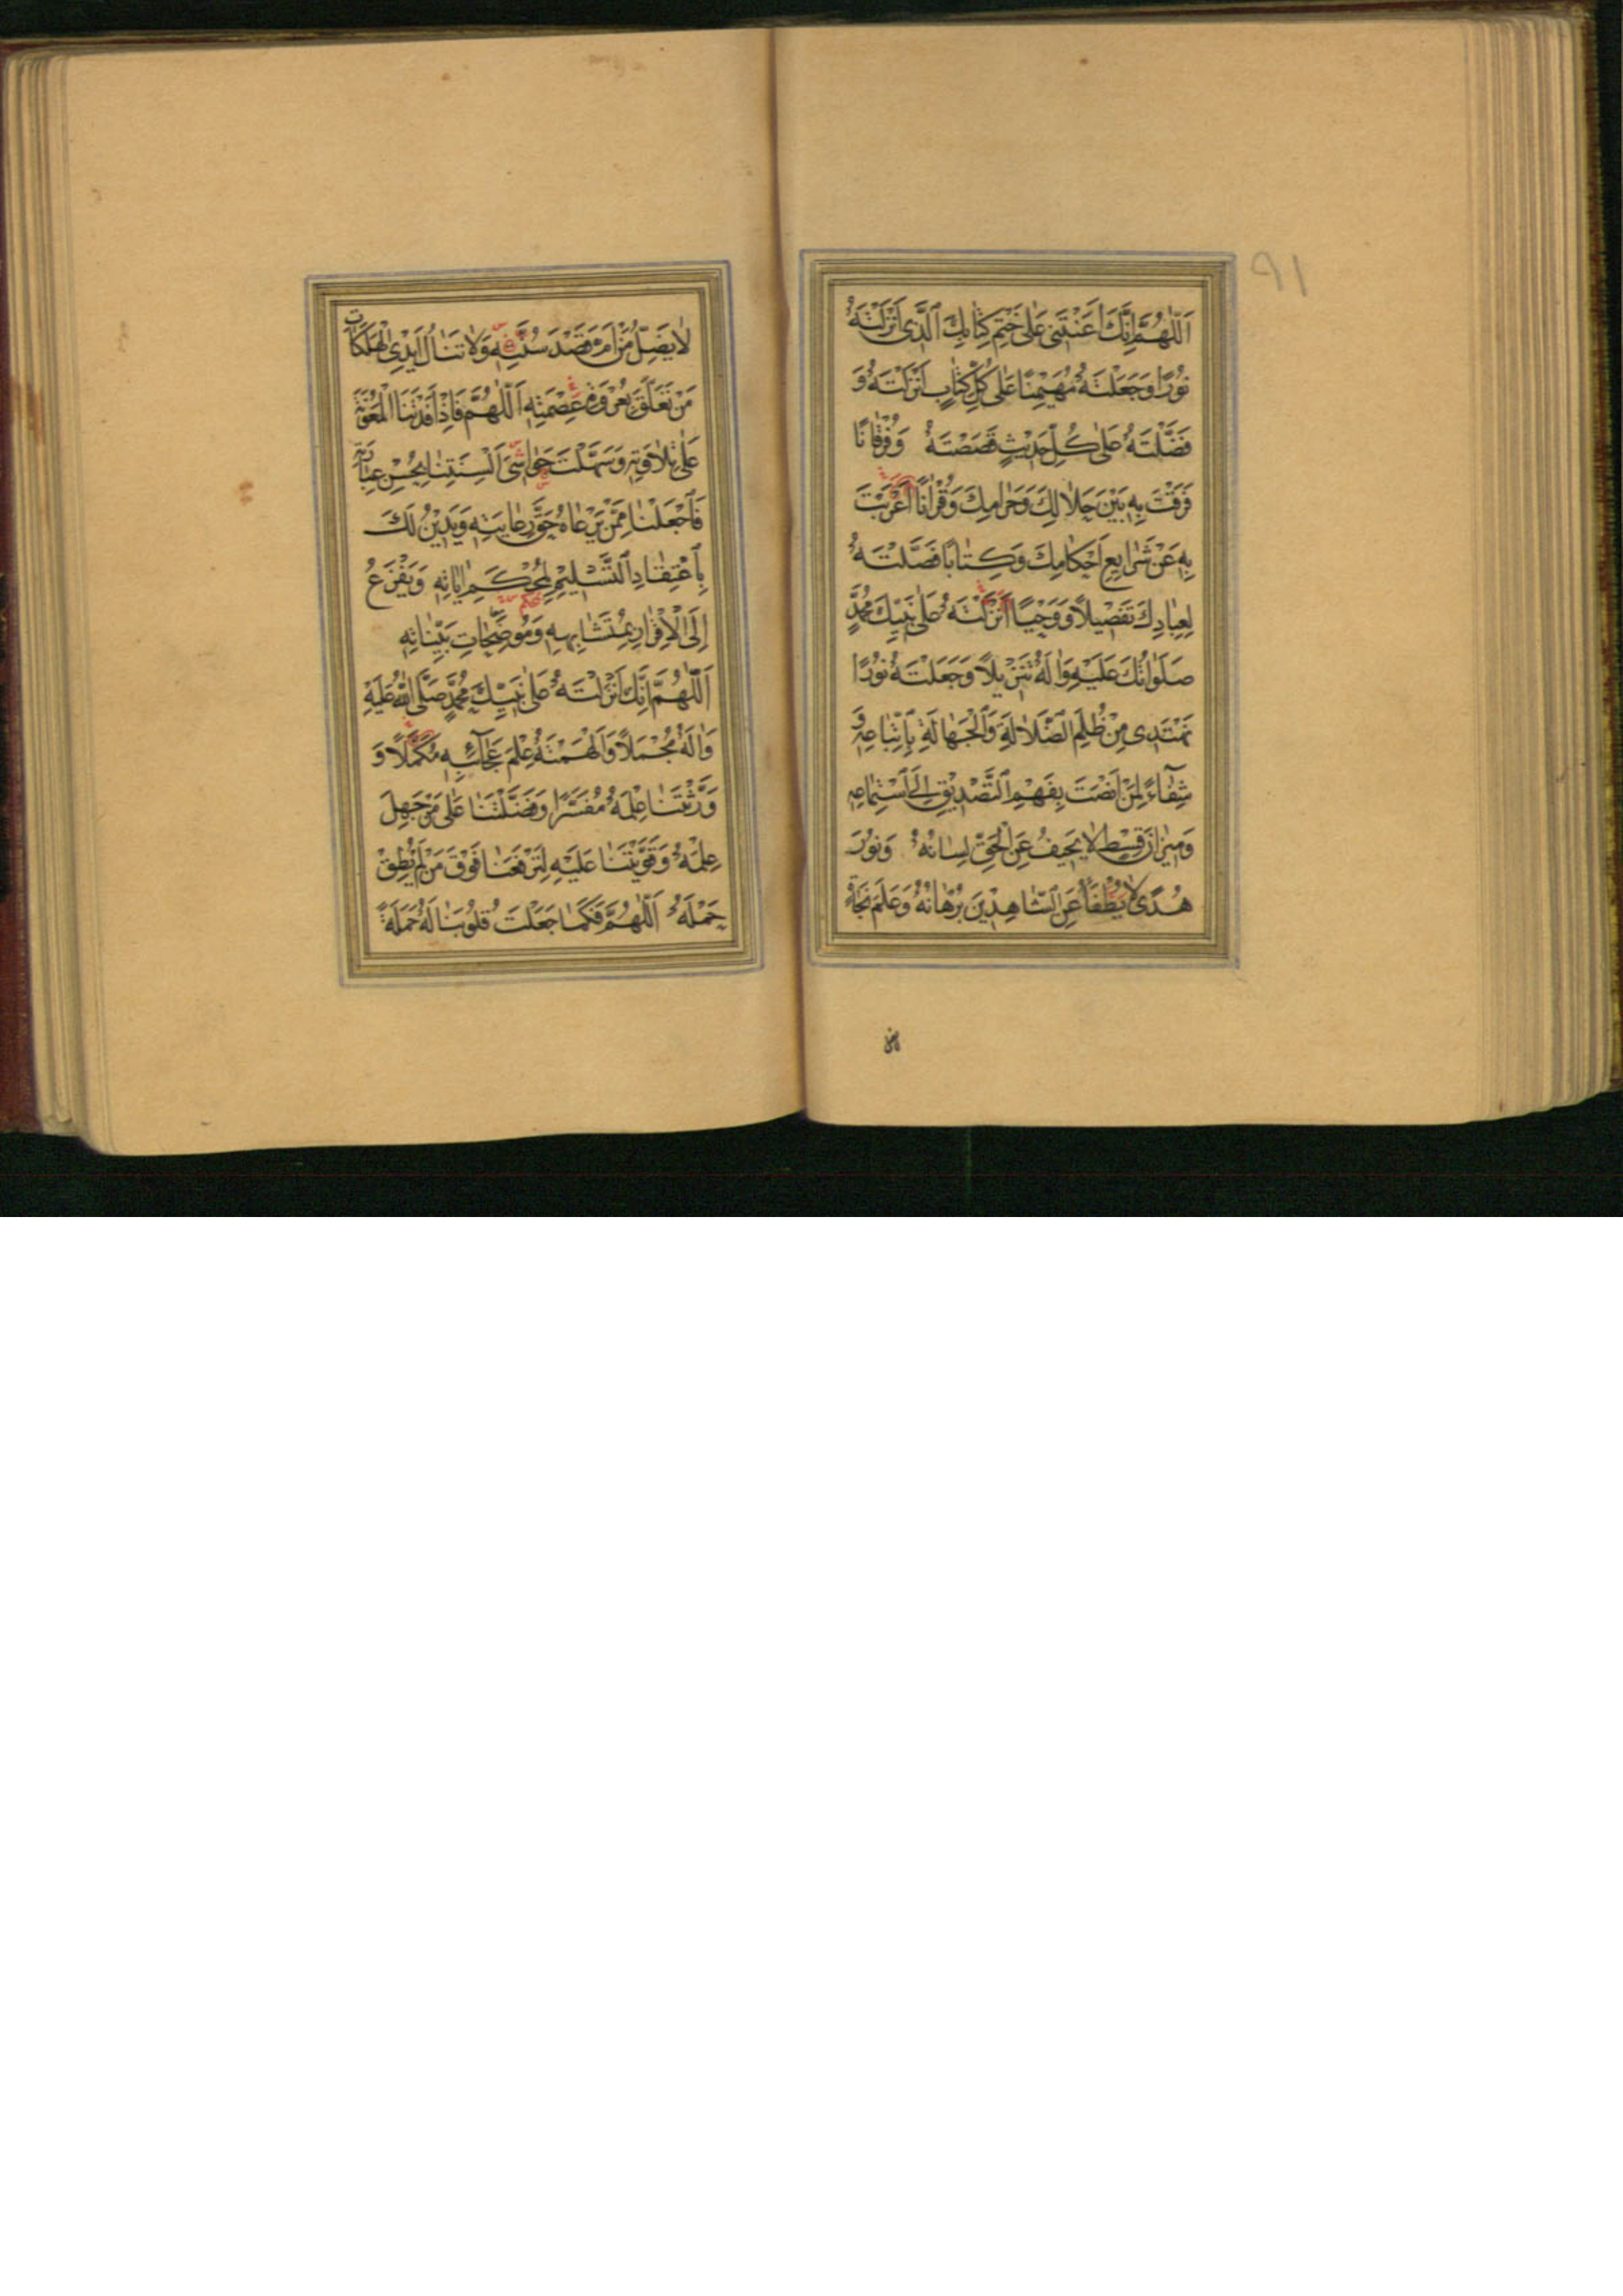 ٩١
اَللّٰهُمَّ اِنَّكَ اَعَنْتَنِي عَلٰى خَتْمِ كِتٰابِكَ الَّذِي اَنْزَلْتَهُ
نُورًا وَجَعَلْتَهُ مُهَيْمِنًا عَلٰى كُلِّ كِتٰابٍ اَنْزَلْتَهُ وَ
فَضَّلْتَهُ عَلٰى كُلِّ حَدِيثٍ قَصَصْتَهُ وَفُرْقٰانًا
فَرَقْتَ بِهِ بَيْنَ حَلاٰلِكَ وَحَرٰامِكَ وَقُرْاٰنًا اَعْرَبْتَ
بِهِ عَنْ شَرٰايِعِ اَحْكٰامِكَ وَكِتٰابًا فَصَّلْتَهُ
لِعِبٰادِكَ تَفْصِيلاً وَوَحْيًا اَنْزَلْتَهُ عَلٰى نَبِيِّكَ مُحَمَّدٍ
صَلَوٰاتُكَ عَلَيْهِ وَاٰلِهِ تَنْزِيلاً وَجَعَلْتَهُ نُورًا
نَهْتَدِي مِنْ ظُلَمِ الضَّلاٰلَةِ وَالْجَهٰالَةِ بِاتِّبٰاعِهِ وَ
شِفٰاءً لِمَنْ اَنْصَتَ بِفَهْمِ التَّصْدِيقِ اِلَى اسْتِمٰاعِهِ
وَمِيزٰانَ قِسْطٍ لاٰ يَحِيفُ عَنِ الْحَقِّ لِسٰانُهُ وَنُورَ
هُدًى لاٰ يُطْفَأُ عَنِ الشّٰاهِدِينَ بُرْهٰانُهُ وَعَلَمَ نَجٰاةٍ
لاٰ يَضِلُّ مَنْ اَمَّ قَصْدَ سُنَّتِهِ وَلاٰ تَنٰالُ اَيْدِي الْهَلَكٰاتِ
مَنْ تَعَلَّقَ بِعُرْوَةِ عِصْمَتِهِ اَللّٰهُمَّ فَاِذْ اَفَدْتَنَا الْمَعُونَةَ
عَلٰى تِلاٰوَتِهِ وَسَهَّلْتَ حَوٰاشِيَ اَلْسِنَتِنٰا بِحُسْنِ عِبٰارَتِهِ
فَاجْعَلْنٰا مِمَّنْ يَرْعٰاهُ حَقَّ رِعٰايَتِهِ وَيَدِينُ لَكَ
بِاعْتِقٰادِ التَّسْلِيمِ لِمُحْكَمِ اٰيٰاتِهِ وَيَفْزَعُ
اِلَى الْاِقْرٰارِ بِمُتَشٰابِهِهِ وَمُوضِحٰاتِ بَيِّنٰاتِهِ
اَللّٰهُمَّ اِنَّكَ اَنْزَلْتَهُ عَلٰى نَبِيِّكَ مُحَمَّدٍ صَلَّى اللهُ عَلَيْهِ
وَاٰلِهِ مُجْمَلاً وَاَلْهَمْتَهُ عِلْمَ عَجٰآئِبِهِ مُكَمَّلاً وَ
وَرَّثْتَنٰا عِلْمَهُ مُفَسَّرًا وَفَضَّلْتَنٰا عَلٰى مَنْ جَهِلَ
عِلْمَهُ وَقَوَّيْتَنٰا عَلَيْهِ لِتَرْفَعَنٰا فَوْقَ مَنْ لَمْ يُطِقْ
حَمْلَهُ اَللّٰهُمَّ فَكَمٰا جَعَلْتَ قُلُوبَنٰا لَهُ حَمَلَةً